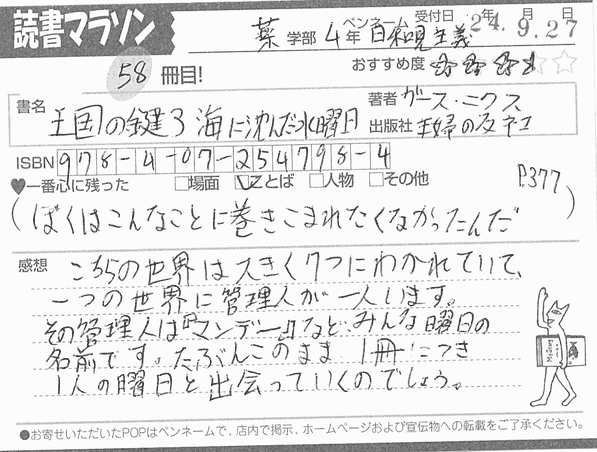 読書マラソン
薬 学部 4 年 ペンネーム 日和見主義 受付日 24年 9月 27日
58 冊目!
おすすめ度
書名 王国の鍵3 海に沈んだ水曜日
著者 ガース・ニクス
出版社 主婦の友社
ISBN 978-4-07-254798-4
♥一番心に残った □場面 ☑ことば □人物 □その他 P.377
(ぼくはこんなことに巻きこまれたくなかったんだ)
感想 こちらの世界は大きく7つにわかれていて、
一つの世界に管理人が一人います。
その管理人は『マンデー』など、みんな曜日の
名前です。たぶんこのまま 1冊につき
1人の曜日と出会っていくのでしょう。
●お寄せいただいたPOPはペンネームで、店内で掲示、ホームページおよび宣伝物への転載をご了承ください。